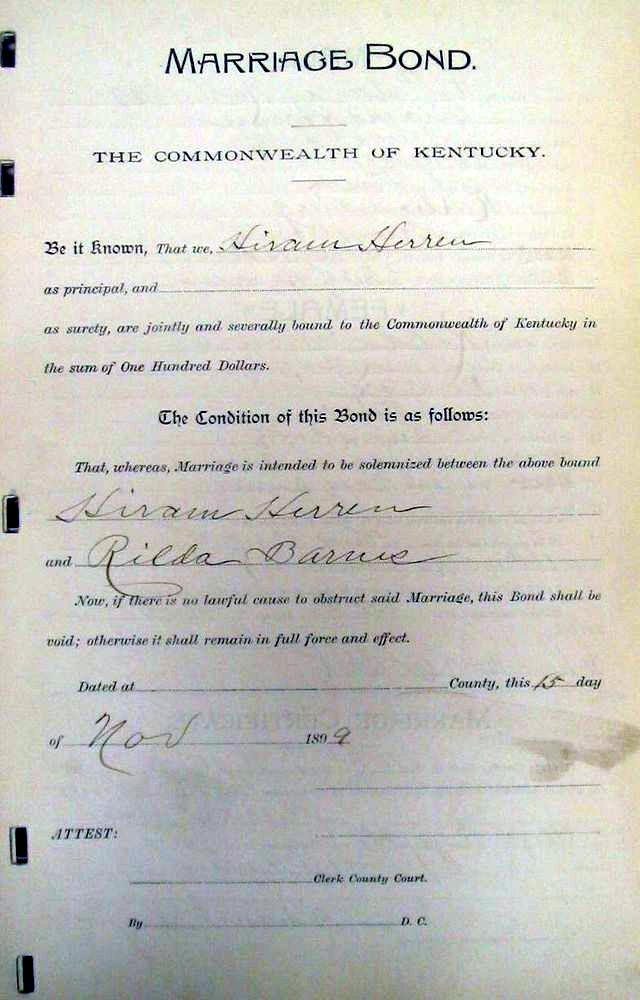 MARRIAGE BOND.
THE COMMONWEALTH OF KENTUCKY.
Be it Known, That we, Hiram Herren
as principal, and
as surety, are jointly and severally bound to the Commonwealth of Kentucky in
the sum of One Hundred Dollars.
The Condition of this Bond is as follows:
That, whereas, Marriage is intended to be solemnized between the above bound
Hiram Herren
and Rilda Barnes
Now, if there is no lawful cause to obstruct said Marriage, this Bond shall be
void; otherwise it shall remain in full force and effect.
Dated at County, this 15 day
of Nov 1899
ATTEST:
Clerk County Court.
By D. C.